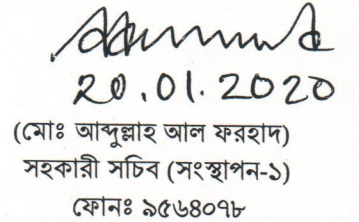 20.01.2020
(মোঃ আব্দুল্লাহ আল ফরহাদ)
সহকারী সচিব (সংস্থাপন-১)
ফোনঃ ৯৫৬৪০৭৮